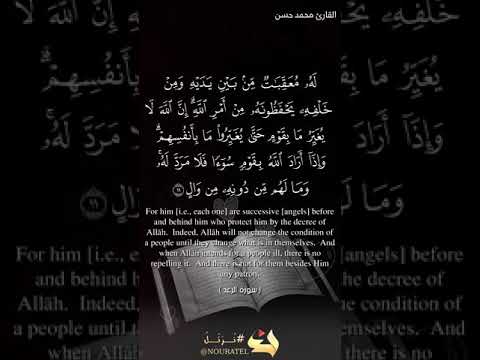 القارئ محمد حسن
لَهُۥ مُعَقِّبَٰتٌ مِّنۢ بَيْنِ يَدَيْهِ وَمِنْ
خَلْفِهِۦ يَحْفَظُونَهُۥ مِنْ أَمْرِ ٱللَّهِ ۗ إِنَّ ٱللَّهَ لَا
يُغَيِّرُ مَا بِقَوْمٍ حَتَّىٰ يُغَيِّرُوا۟ مَا بِأَنفُسِهِمْ ۗ
وَإِذَآ أَرَادَ ٱللَّهُ بِقَوْمٍ سُوٓءًا فَلَا مَرَدَّ لَهُۥ ۚ
وَمَا لَهُم مِّن دُونِهِۦ مِن وَالٍ ۝١١
For him [i.e., each one] are successive [angels] before
and behind him who protect him by the decree of
Allāh. Indeed, Allāh will not change the condition of
a people until they change what is in themselves. And
when Allāh intends for a people ill, there is no
repelling it. And there is not for them besides Him
any patron.
( سورة الرعد )
#نُرَتِّل
@NOURATEL